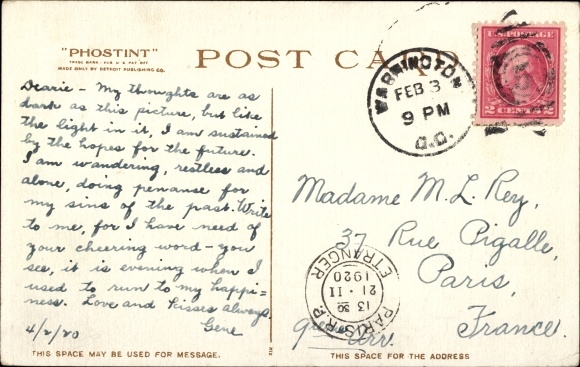 "PHOSTINT"
TRADE MARK - FOR U.S. PAT. OFF.
MADE ONLY BY DETROIT PUBLISHING CO.
POST CARD
Dearie - My thoughts are as
dark as this picture, but like
the light in it, I am sustained
by the hopes for the future.
I am wandering, restless and
alone, doing penanse for
my sins of the past. Write
to me, for I have need of
your cheering word - you
see, it is evening when I
used to run to my happi=
ness. Love and kisses always
Gene
4/2/20
THIS SPACE MAY BE USED FOR MESSAGE.
WASHINGTON
FEB 3
9 PM
D.C.
U.S. POSTAGE
2 CENTS 2
Madame M. L. Rey,
37 Rue Pigalle,
Paris,
France.
PARIS R.P.
13 30
21 · II
1920
ETRANGER
Arr.
THIS SPACE FOR THE ADDRESS